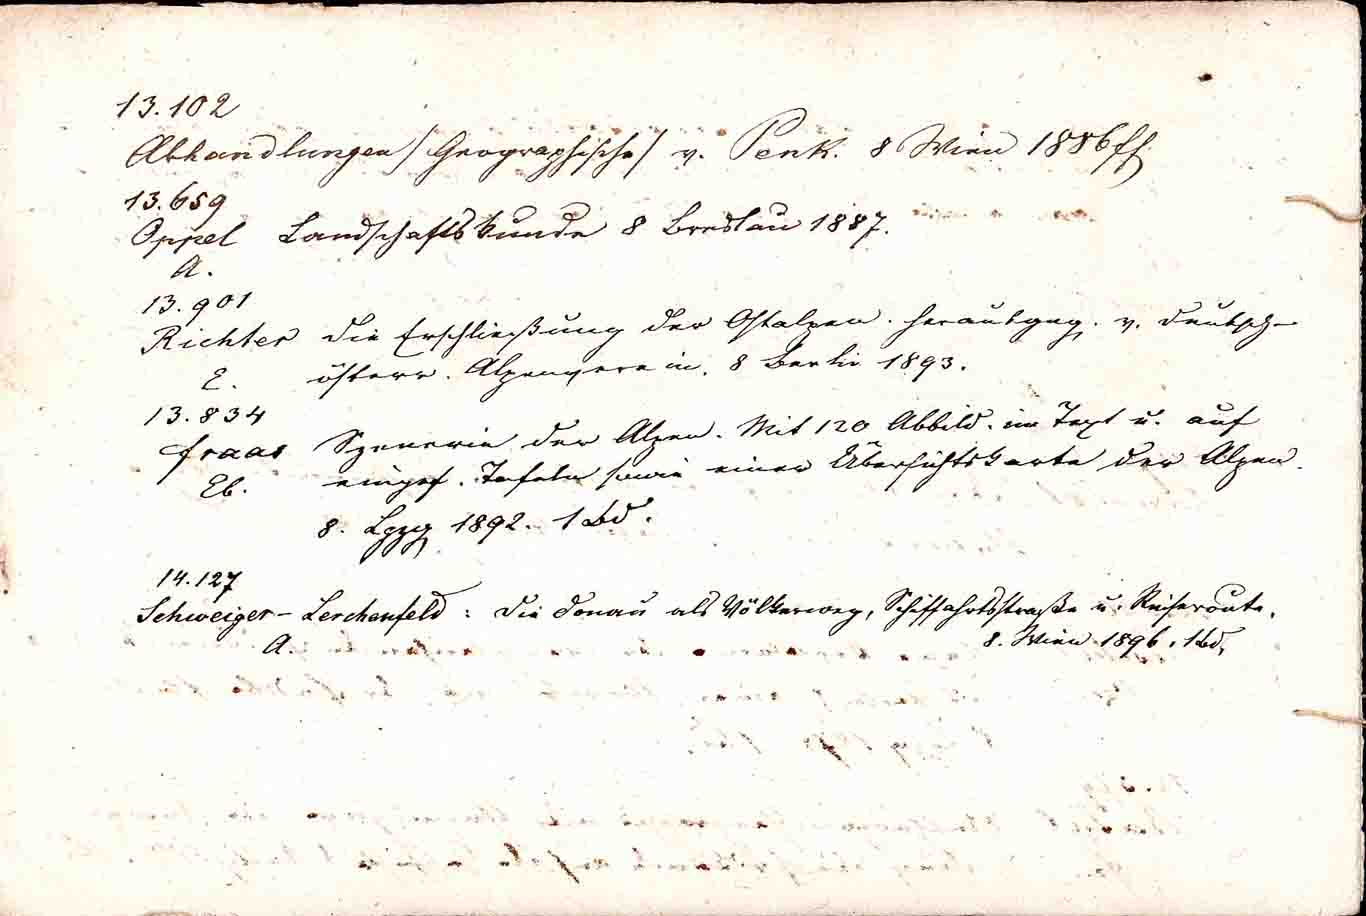 13.102
Abhandlungen /Geographische/ v. Penk. 8 Wien 1886ff.
13.659
Oppel Landschaftskunde 8 Breslau 1887.
A.
13.901
Richter Die Erschließung der Ostalpen. herausgeg. v. deutsch-
E. österr. Alpenverein. 8 Berlin 1893.
13.834
Fraas Szenerie der Alpen. Mit 120 Abbild. im Text u. auf
Eb. eingef. Tafeln sowie einer Übersichtskarte der Alpen.
8. Lpzg 1892. 1 Bd.
14.127
Schweiger-Lerchenfeld: Die Donau als Völkerweg, Schiffahrtsstraße u. Reiseroute.
A. 8. Wien 1896. 1 Bd.